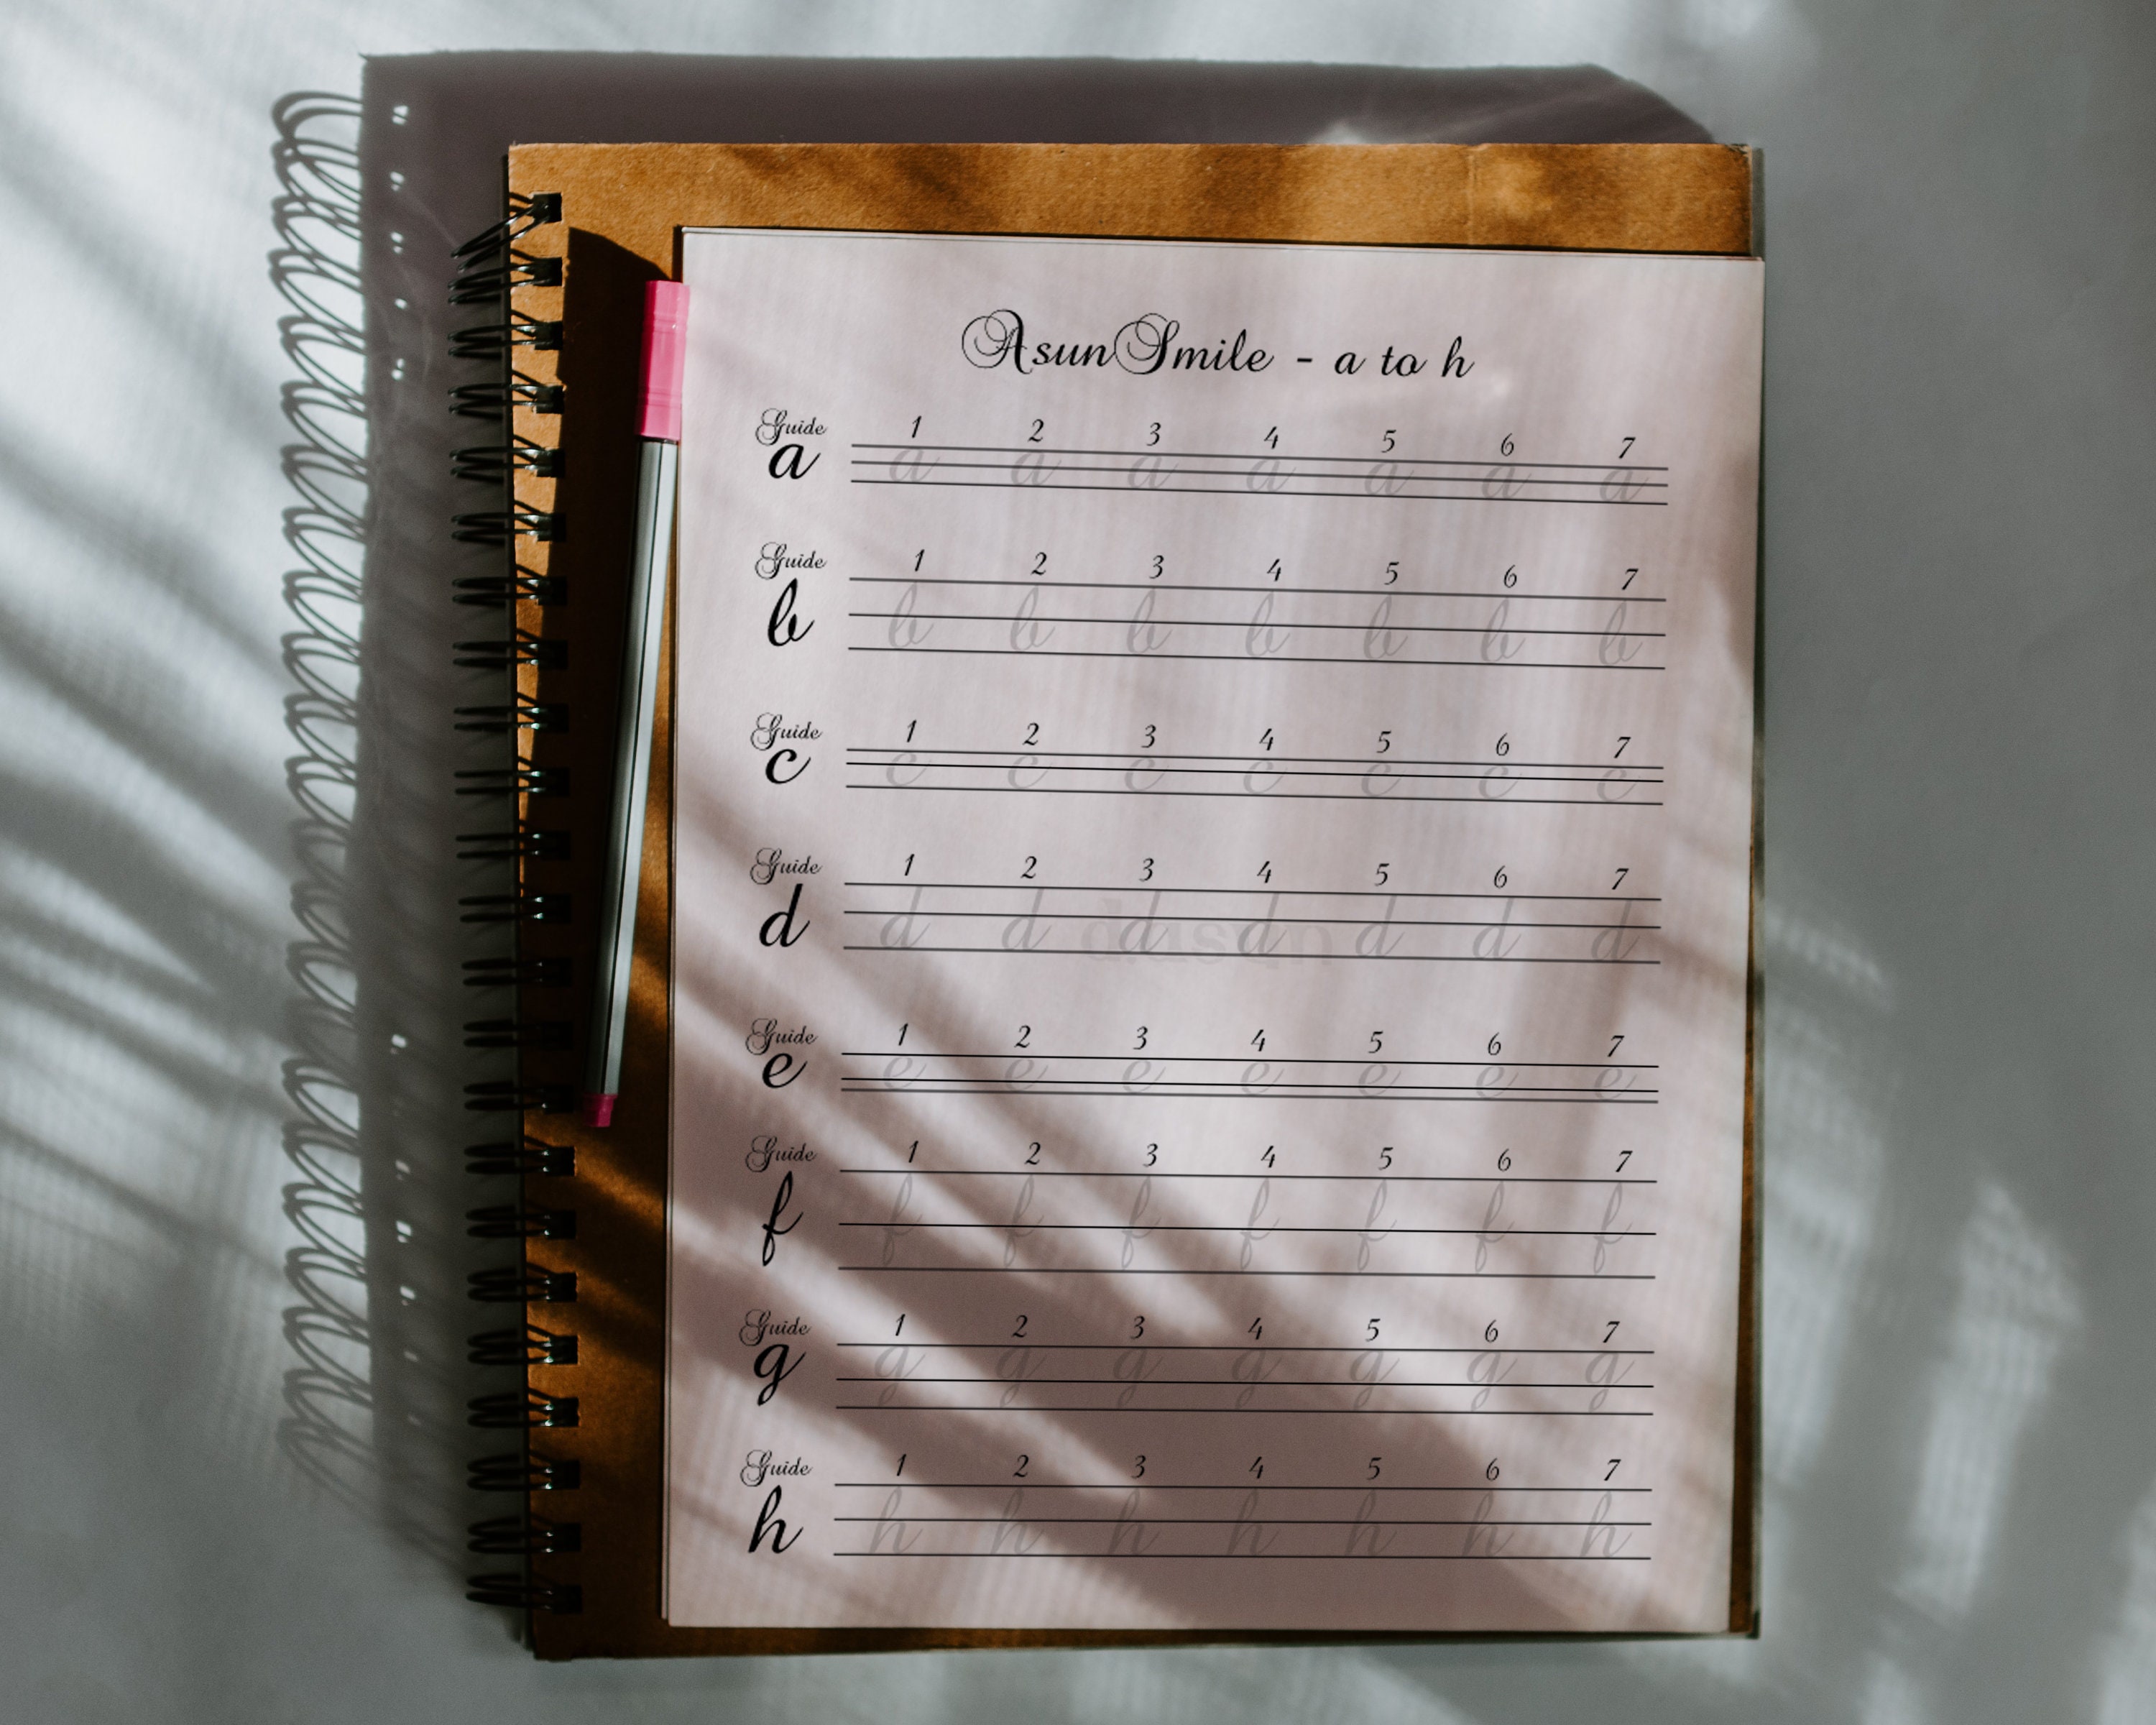 AsunSmile - a to h
Guide 1 2 3 4 5 6 7
a a a a a a a a
Guide 1 2 3 4 5 6 7
b b b b b b b b
Guide 1 2 3 4 5 6 7
c c c c c c c c
Guide 1 2 3 4 5 6 7
d d d d d d d d
Guide 1 2 3 4 5 6 7
e e e e e e e e
Guide 1 2 3 4 5 6 7
f f f f f f f f
Guide 1 2 3 4 5 6 7
g g g g g g g g
Guide 1 2 3 4 5 6 7
h h h h h h h h